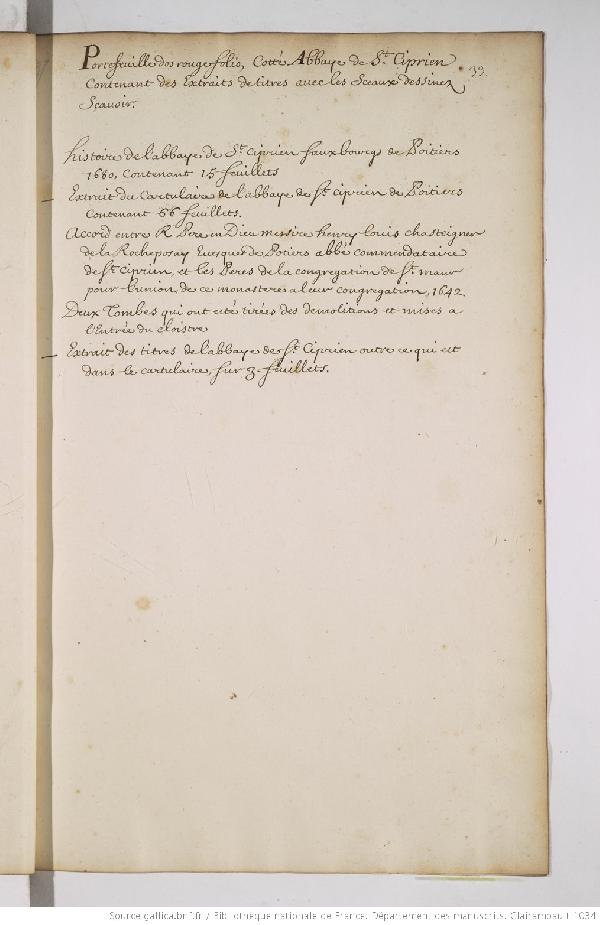 Portefeuille dos rouge folio, Cotté Abbaye de St. Ciprien
33.
Contenant des Extraits de titres avec les Sceaux dessinez
Scavoir.
histoire de l'abbaye de St. Ciprien fauxbourgs de Poitiers
1680, contenant 15 feuillets
Extrait du Cartulaire de l'abbaye de St. Ciprien de Poitiers
Contenant 66 feuillets.
Accord entre R Pere en Dieu messire henry louis chasteigner
de la Rocheposay Evesque de Potiers abbé commendataire
de St. Ciprien, et les Peres de la congregation de St. maur
pour l'union de ce monastere a leur congregation, 1642.
Deux Tombes qui ont eté tirées des demolitions et mises a
l'Entrée du cloistre
Extrait des titres de l'abbaye de St. Ciprien outre ce qui est
dans le cartulaire, sur 3. feuillets.
Source gallica.bnf.fr / Bibliothèque nationale de France. Département des manuscrits. Clairambault 1034